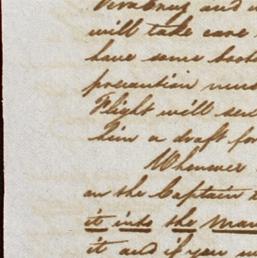 and
will take care
have some
precaution
Flight will
him a draft for
Whenever
on the Captain
it into the
it and if you